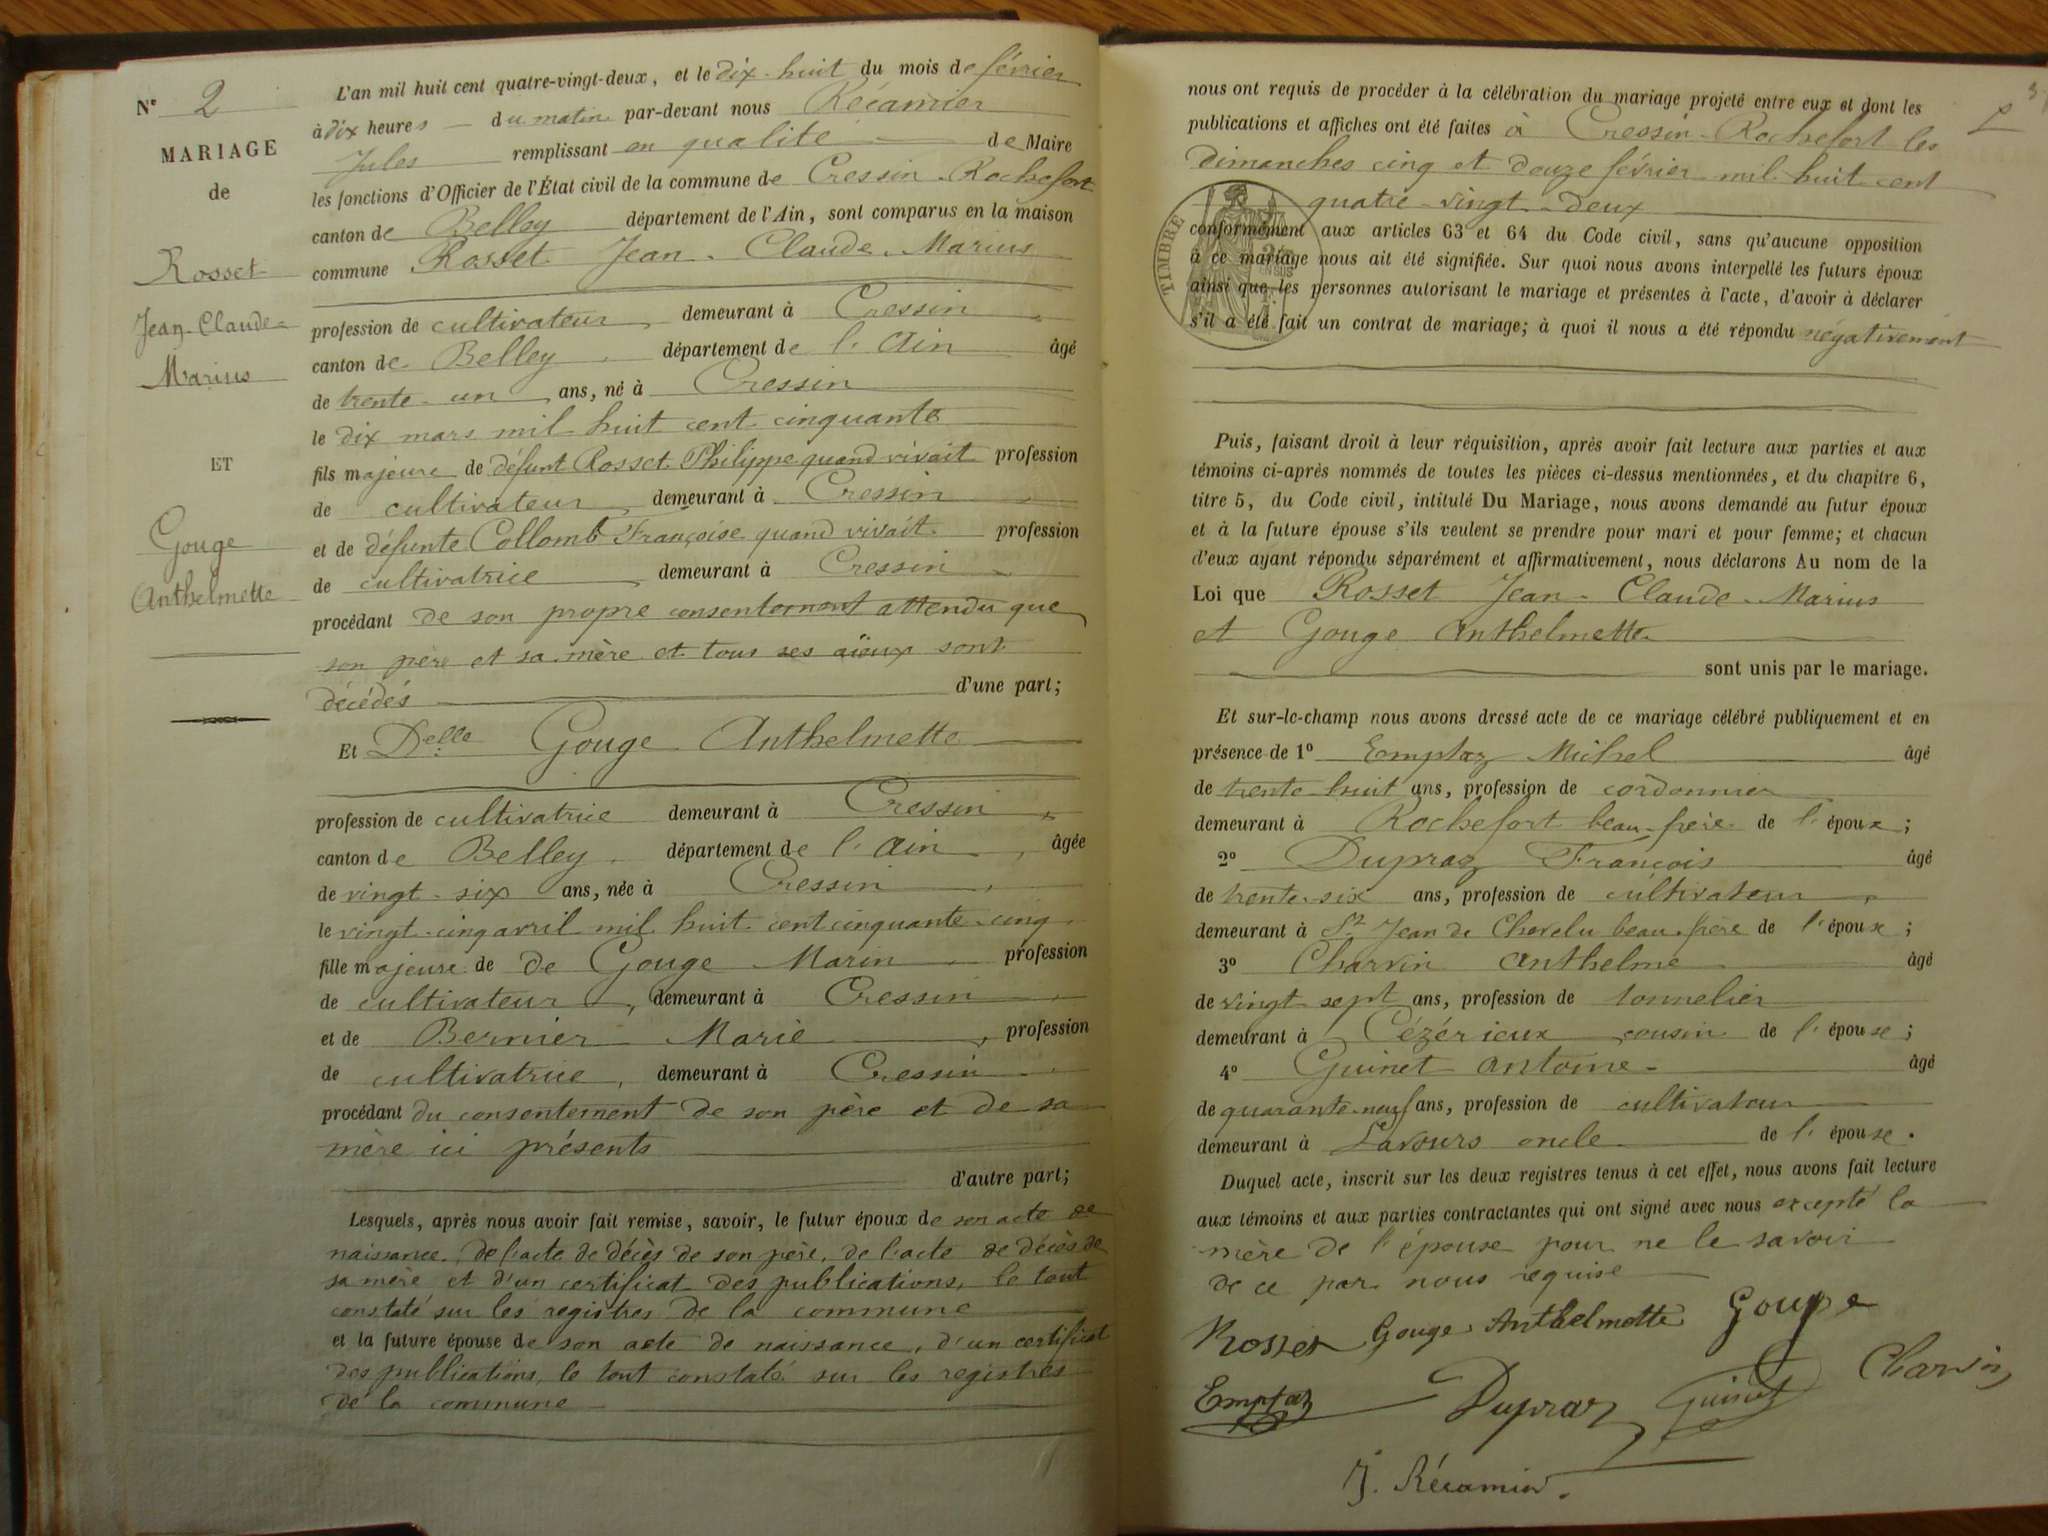 N° 2
MARIAGE
de
Rosset
Jean-Claude-
Marius
ET
Gouge
Anthelmette
L'an mil huit cent quatre-vingt-deux, et le dix-huit du mois de février
à dix heures du matin par-devant nous Récamier
Jules remplissant en qualité de Maire
les fonctions d'Officier de l'État civil de la commune de Cressin-Rochefort
canton de Belley département de l'Ain, sont comparus en la maison
commune Rosset Jean-Claude-Marius
profession de cultivateur demeurant à Cressin
canton de Belley département de l'Ain âgé
de trente-un ans, né à Cressin
le dix mars mil huit cent cinquante
fils majeure de défunt Rosset Philippe quand vivait profession
de cultivateur demeurant à Cressin
et de défunte Collomb Françoise quand vivait profession
de cultivatrice demeurant à Cressin
procédant de son propre consentement attendu que
son père et sa mère et tous ses aïeux sont
décédés d'une part;
Et Delle Gouge Anthelmette
profession de cultivatrice demeurant à Cressin
canton de Belley département de l'Ain, âgée
de vingt-six ans, née à Cressin
le vingt-cinq avril mil huit cent cinquante-cinq
fille majeure de de Gouge Marin profession
de cultivateur, demeurant à Cressin
et de Bernier Marie, profession
de cultivatrice, demeurant à Cressin
procédant du consentement de son père et de sa
mère ici présents
d'autre part;
Lesquels, après nous avoir fait remise, savoir, le futur époux de son acte de
naissance, de l'acte de décès de son père, de l'acte de décès de
sa mère et d'un certificat des publications, le tout
constaté sur les registres de la commune
et la future épouse de son acte de naissance, d'un certificat
des publications, le tout constaté sur les registres
de la commune
nous ont requis de procéder à la célébration du mariage projeté entre eux et dont les
publications et affiches ont été faites à Cressin-Rochefort les
dimanches cinq et douze février mil huit cent
quatre-vingt-deux
TIMBRE
conformément aux articles 63 et 64 du Code civil, sans qu'aucune opposition
à ce mariage nous ait été signifiée. Sur quoi nous avons interpellé les futurs époux
ainsi que les personnes autorisant le mariage et présentes à l'acte, d'avoir à déclarer
s'il a été fait un contrat de mariage; à quoi il nous a été répondu négativement
Puis, faisant droit à leur réquisition, après avoir fait lecture aux parties et aux
témoins ci-après nommés de toutes les pièces ci-dessus mentionnées, et du chapitre 6,
titre 5, du Code civil, intitulé Du Mariage, nous avons demandé au futur époux
et à la future épouse s'ils veulent se prendre pour mari et pour femme; et chacun
d'eux ayant répondu séparément et affirmativement, nous déclarons Au nom de la
Loi que Rosset Jean-Claude-Marius
et Gouge Anthelmette
sont unis par le mariage.
Et sur-le-champ nous avons dressé acte de ce mariage célébré publiquement et en
présence de 1° Emptaz Michel âgé
de trente-huit ans, profession de cordonnier
demeurant à Rochefort beau-frère de l'époux;
2° Dupraz François âgé
de trente-six ans, profession de cultivateur
demeurant à St Jean de Chevelu beau-frère de l'époux;
3° Charvin Anthelme âgé
de vingt sept ans, profession de tonnelier
demeurant à Cézérieux cousin de l'épouse;
4° Guinet Antoine âgé
de quarante-neuf ans, profession de cultivateur
demeurant à Lavours oncle de l'épouse.
Duquel acte, inscrit sur les deux registres tenus à cet effet, nous avons fait lecture
aux témoins et aux parties contractantes qui ont signé avec nous excepté la
mère de l'épouse pour ne le savoir
de ce par nous requise
Rosset Gouge Anthelmette Gouge
Emptaz Dupraz Guinet Charvin
J. Récamier.